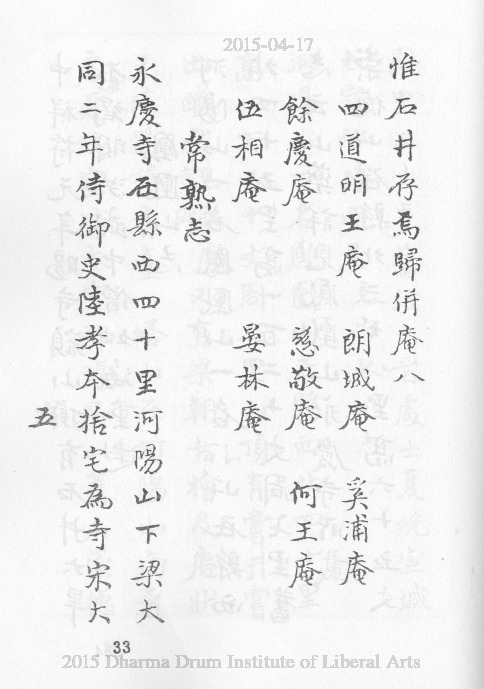 2015-04-17
惟石井存焉歸併庵八
四道明王庵 朗城庵 奚浦庵
餘慶庵 慈敬庵 何王庵
伍相庵 晏林庵
常熟志
永慶寺在縣西四十里河陽山下梁大
同二年侍御史陸孝本捨宅為寺宋大
五
33
2015 Dharma Drum Institute of Liberal Arts